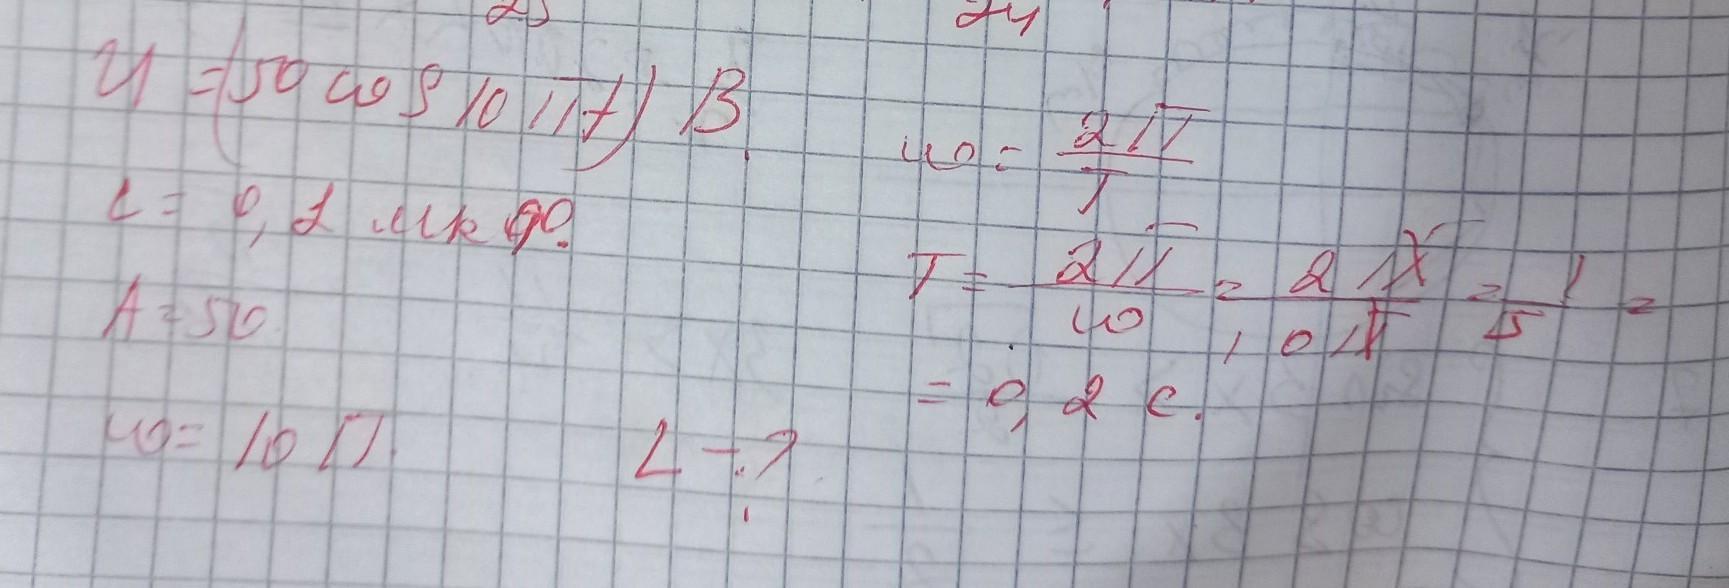 U = (50 cos 10 πt) В
C = 0,1 мкФ.
A = 50
ω = 10 π
L - ?
ω = 2π / T
T = 2π / ω = 2π / 10π = 1 / 5 =
= 0,2 с.